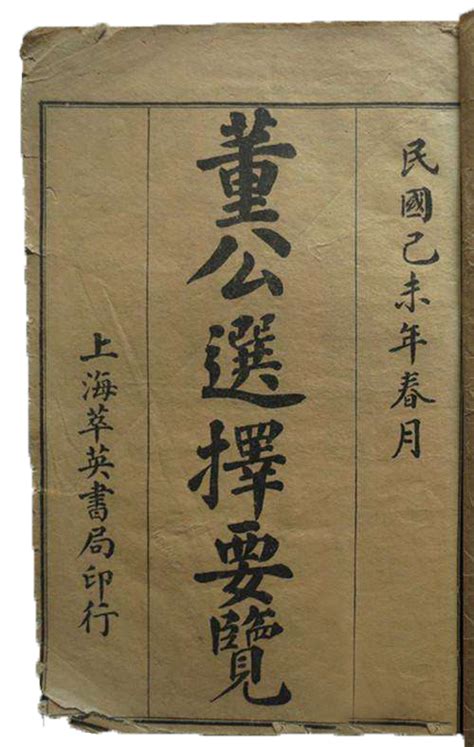 民國己未年春月
董公選擇要覽
上海萃英書局印行